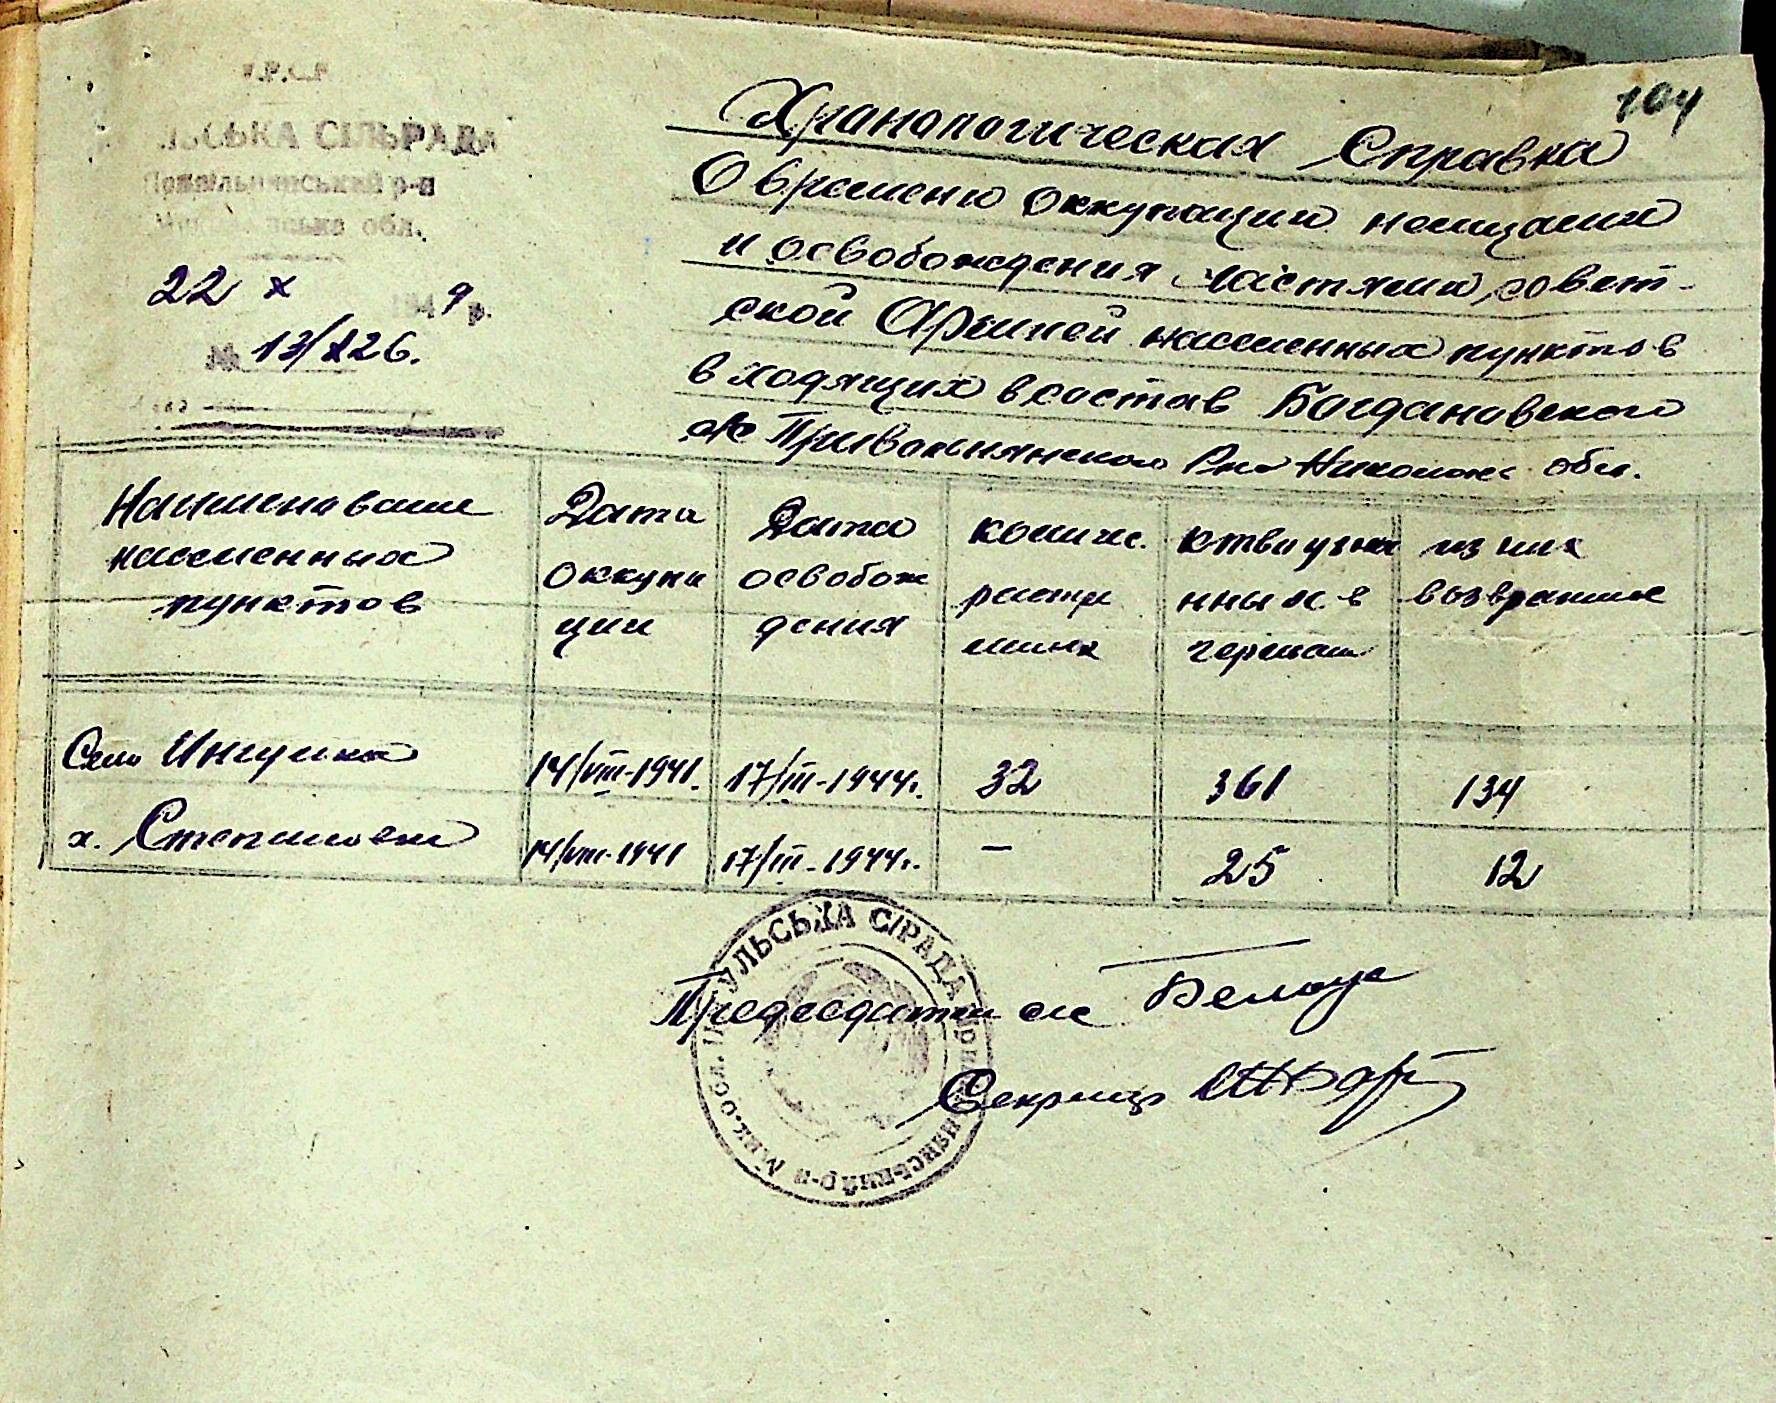 104
У.Р.С.Р
ЛЬСЬКА СІЛЬРАДА
Привільнянський р-н
обл.
22 X 1949 р.
№ 13/226.
Хронологическая Справка
О времени оккупации немцами
и освобождения частями совет-
ской Армией населенных пунктов
входящих в состав Богдановского
с/с Привольнянского Р-на Николаевс обл.
Наименование населенных пунктов
Дата оккупа ции
Дата освобож дения
количес. расстре лянных
к тво угна нных в германию
из них возвратилось
Село Ингулка 14/VIII-1941. 17/III-1944г. 32 361 134
х. Степановка 14/VIII-1941 17/III-1944г. — 25 12
УЛЬСЬКА С/РАДА Привільнянський р-н Мик. обл.
Председатель с/с Белоус
Секретарь